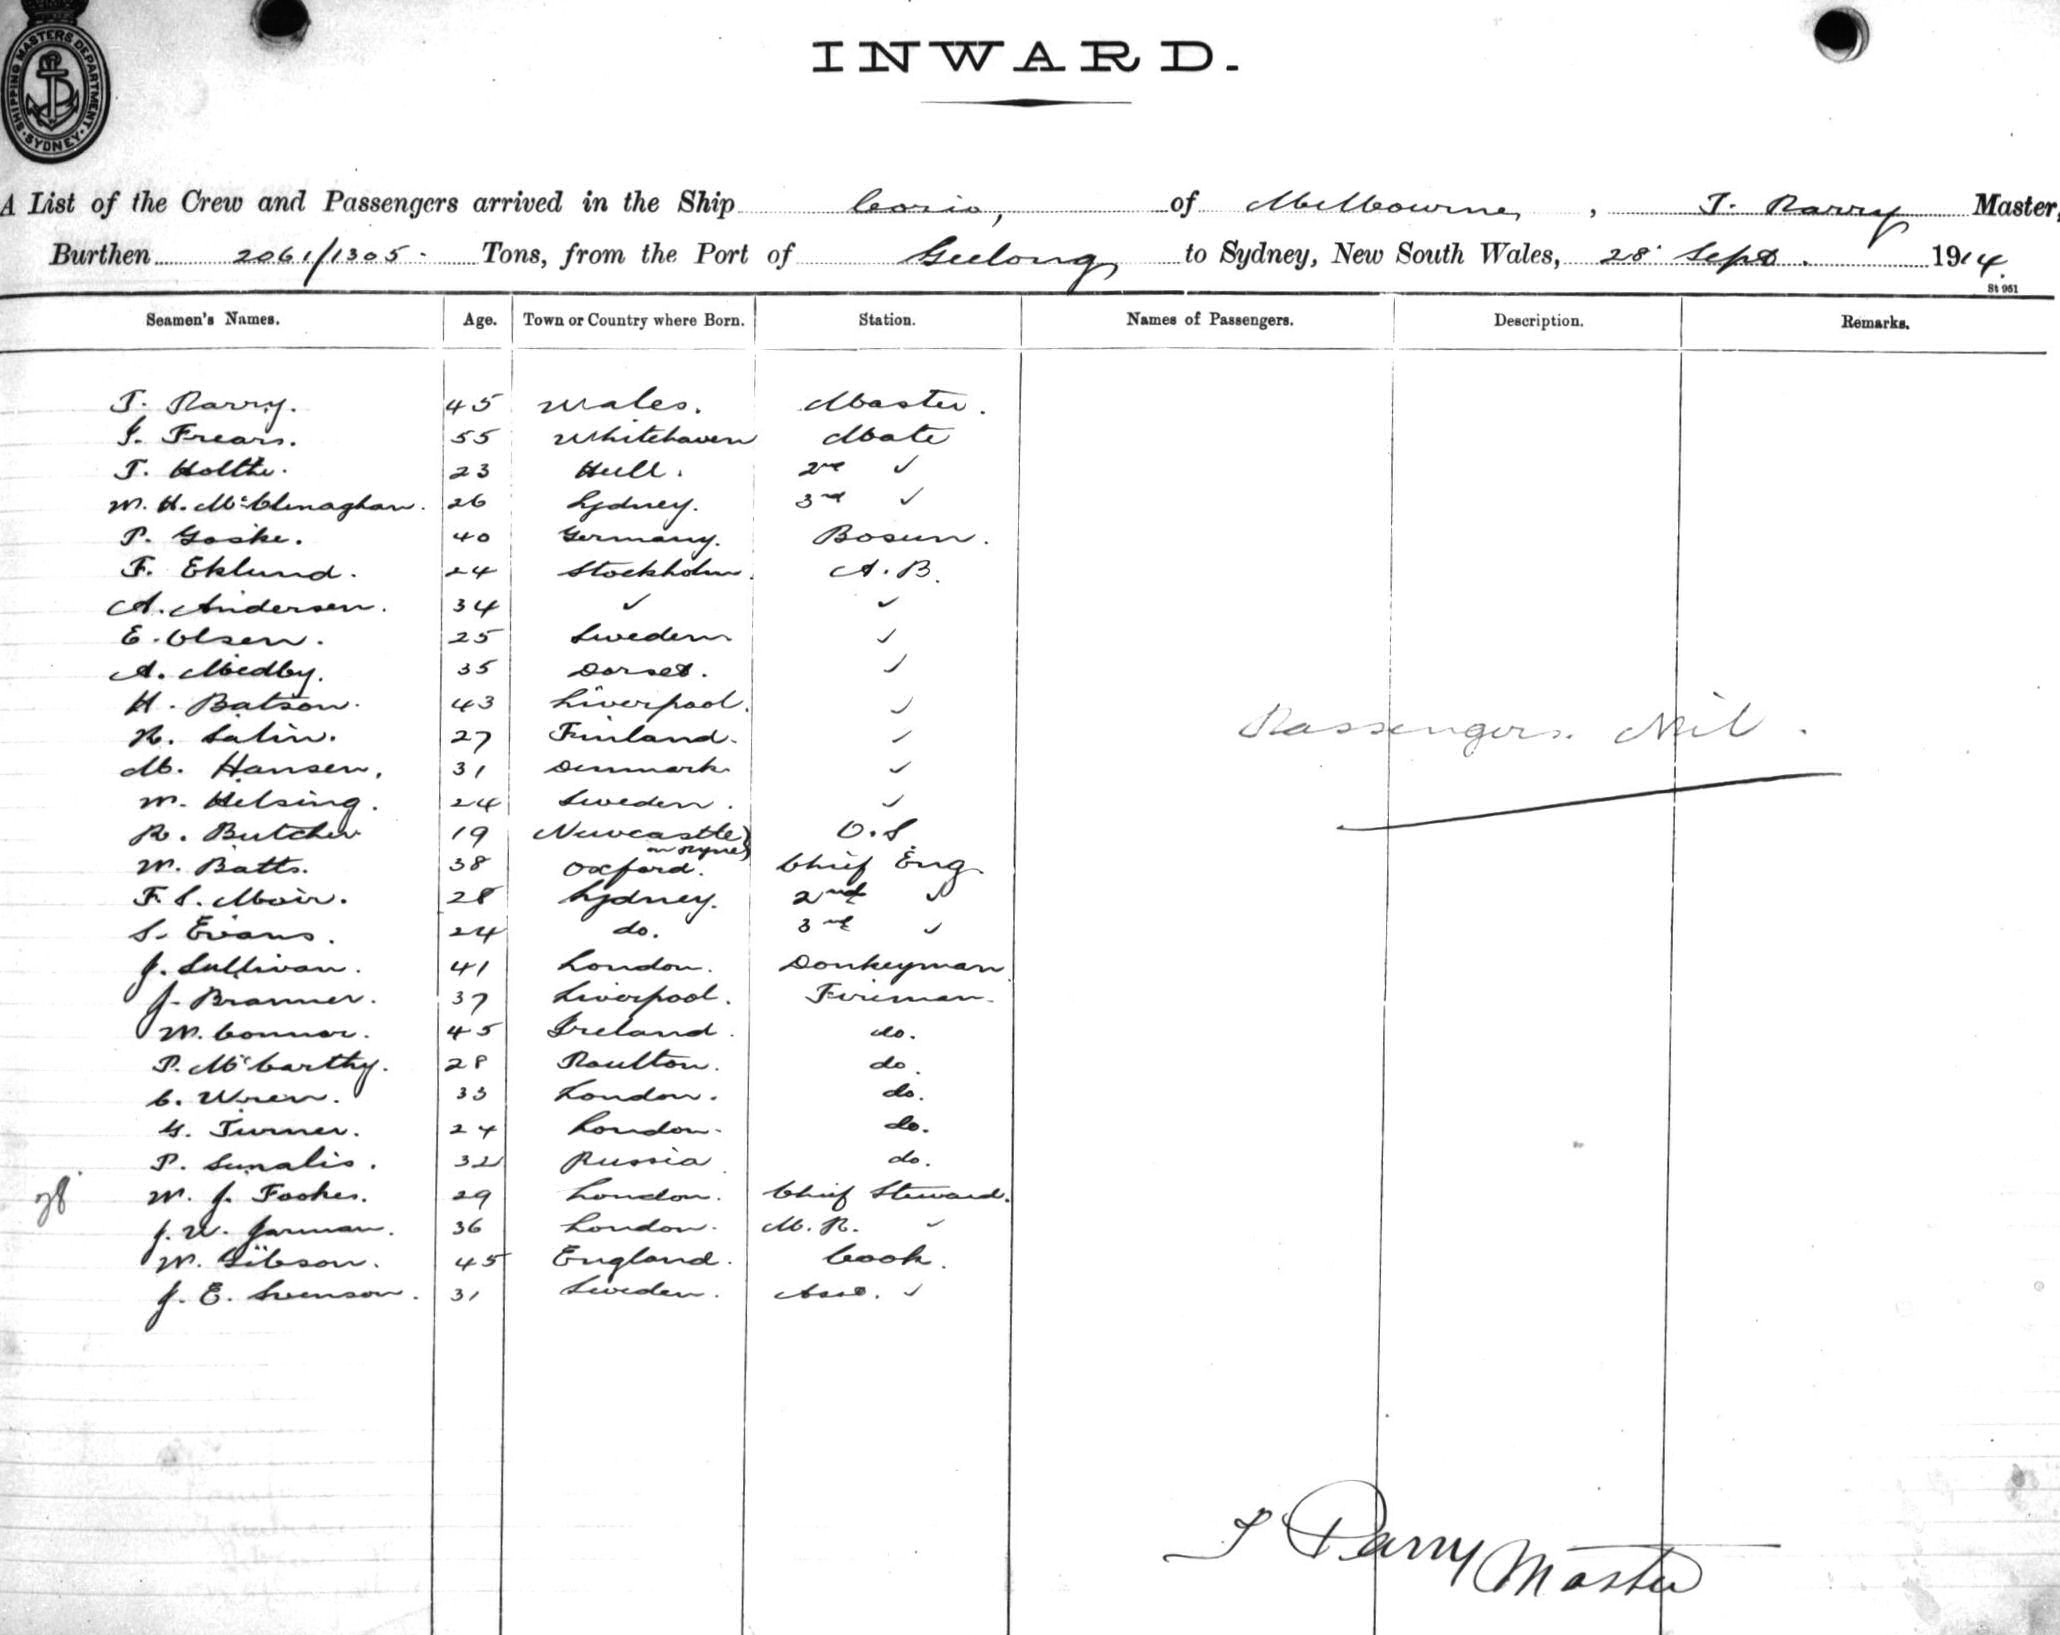 SHIPPING MASTERS DEPARTMENT · SYDNEY ·
INWARD.
A List of the Crew and Passengers arrived in the Ship Corio, of Melbourne, T. Parry Master,
Burthen 2061/1305. Tons, from the Port of Geelong to Sydney, New South Wales, 28 Sept. 1914.
St 961
Seamen's Names. Age. Town or Country where Born. Station. Names of Passengers. Description. Remarks.
T. Parry. 45 Wales. Master.
J. Frears. 55 Whitehaven Mate
T. Holthe. 23 Hull. 2nd ✓
W. H. McClenaghan. 26 Sydney. 3rd ✓
P. Goske. 40 Germany. Bosun.
F. Eklund. 24 Stockholm. A.B.
A. Andersen. 34 ✓ ✓
E. Olsen. 25 Sweden ✓
A. Medby. 35 Dorset. ✓
H. Batson. 43 Liverpool. ✓
R. Salin. 27 Finland. ✓
M. Hansen, 31 Denmark ✓
W. Helsing. 24 Sweden. ✓
R. Butcher 19 Newcastle O.S
on Tyne
W. Batts. 38 Oxford. Chief Eng.
F. S. Moir. 28 Sydney. 2nd ✓
S. Evans. 24 do. 3rd ✓
J. Sullivan. 41 London. Donkeyman.
J. Branner. 37 Liverpool. Fireman.
W. Connor. 45 Ireland. do.
P. McCarthy. 28 Poulton. do.
C. Wren. 33 London. do.
G. Turner. 24 London. do.
P. Sunalis. 32 Russia. do.
28 W. J. Fookes. 29 London. Chief Steward.
J. W. Jarman. 36 London. M. R. ✓
W. Gibson. 45 England. Cook.
J. E. Svenson. 31 Sweden. Asst. ✓
Passengers. Nil.
T Parry Master